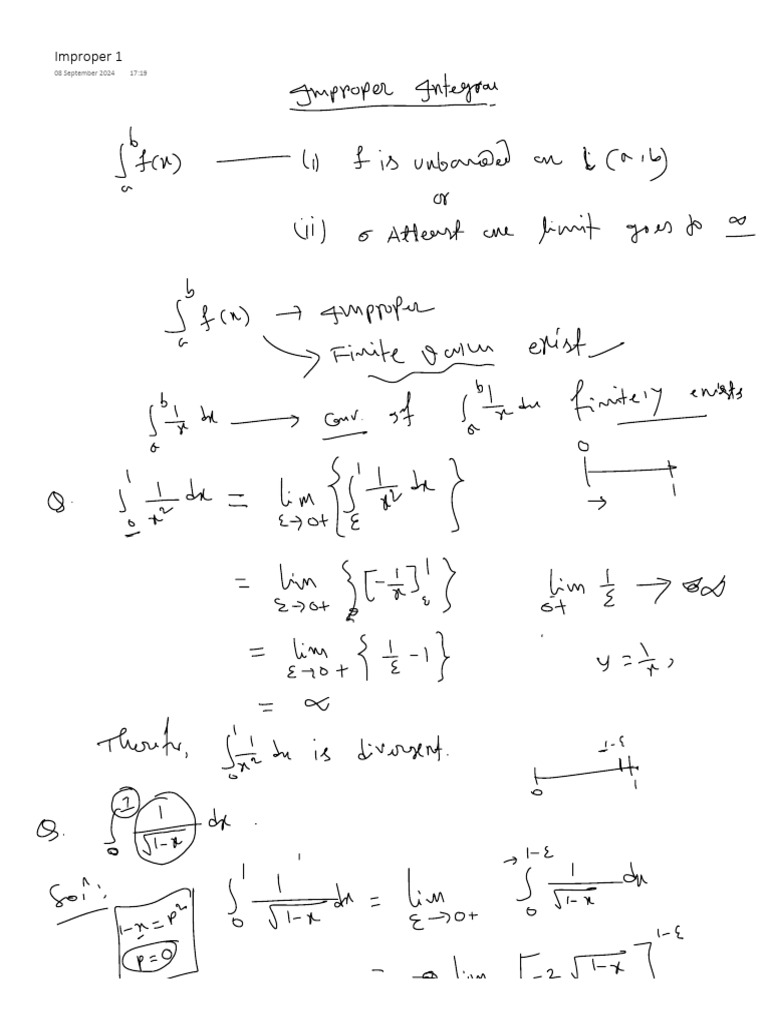 Improper 1
08 September 2024 17:19
Improper Integral
∫_a^b f(x) —— (i) f is unbounded on (a, b)
or
(ii) Atleast one limit goes to ∞
∫_a^b f(x) → Improper
→ Finite value exist
∫_a^b 1/x dx ⟶ conv. if ∫_a^b 1/x dx finitely exists
0
1
Q. ∫_0^1 1/x² dx = lim_{ε→0+} { ∫_ε^1 1/x² dx }
= lim_{ε→0+} { [-1/x]_ε^1 } lim_{0+} 1/ε → ∞
= lim_{ε→0+} { 1/ε - 1 } y = 1/x,
= ∞
Therefore, ∫_0^1 1/x² dx is divergent.
1-ε
0 1
Q. ∫_0^1 1/√(1-x) dx.
Solⁿ: ∫_0^1 1/√(1-x) dx = lim_{ε→0+} ∫_0^{1-ε} 1/√(1-x) dx
1-x = p²
p = 0
= lim [-2 √(1-x)]^{1-ε}